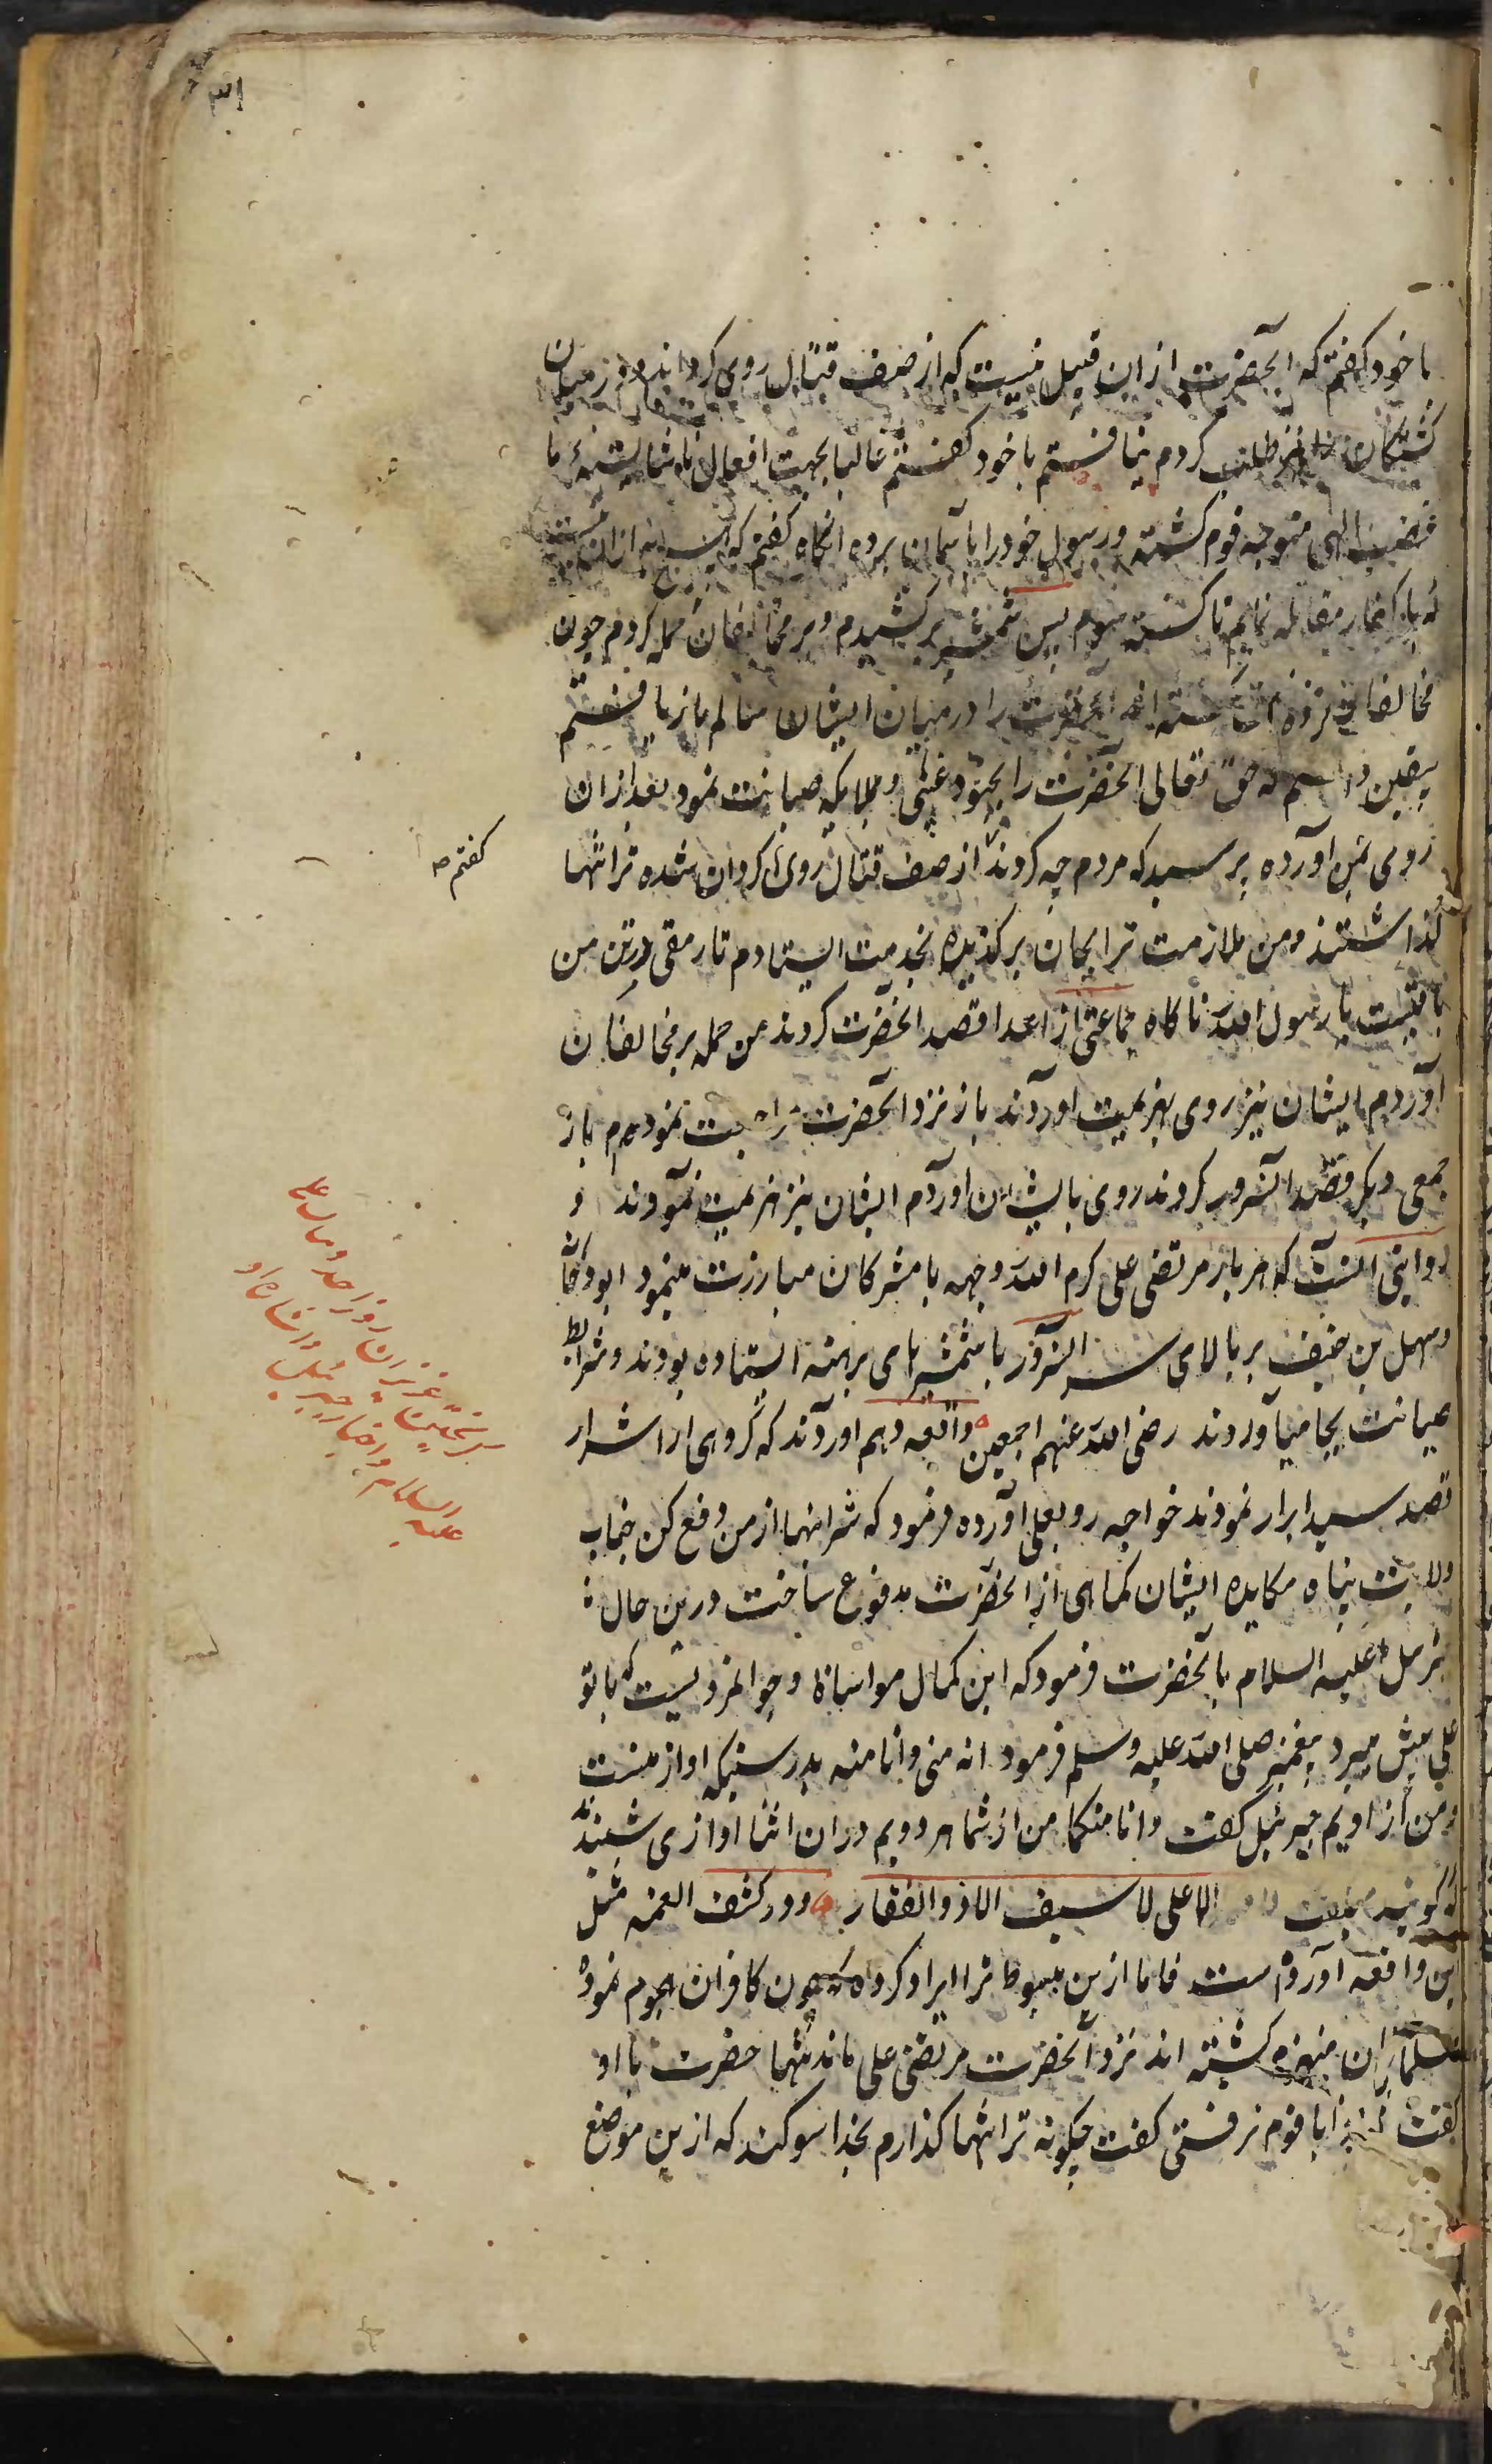 با خود گفتم که آنحضرت از این قبیل نیست که از صف قتال روی گرداند و در میان
کشتگان نیز طلب کردم نیافتم با خود گفتم غالبا بجهت افعال ناشایسته ما
غضب الهی متوجه قوم گشته و رسول خود را بآسمان برده انگاه گفتم که به ازان نیست
که با کفار مقاتله نمایم تا کشته شوم پس شمشیر برکشیدم و بر مخالفان حمله کردم چون
مخالفان آنحضرت را در میان ایشان سالم بازیافتم
بیقین دانستم که حق تعالی آنحضرت را بجنود غیبی و ملایکه صیانت نمود بعد ازان
روی بمن آورده پرسید که مردم چه کردند از صف قتال روی گردان شده ترا تنها
گفتم
گذاشتند و من ملازمت ترا بجان برگزیده بخدمت ایستادم تا رمقی در تن من
باقیست یا رسول الله ناگاه جماعتی از اعدا قصد آنحضرت کردند من حمله بر مخالفان
آوردم ایشان نیز روی بهزیمت اوردند باز نزد آنحضرت مراجعت نمودم باز
جمعی دیگر قصد آنسرور کردند روی بایشان اوردم ایشان نیز هزیمت نمودند و
روایتی آنست که هر بار مرتضی علی کرم الله وجهه با مشرکان مبارزت مینمود ابودجانه
و سهل بن حنیف بر بالای سر آنسرور با شمشیرهای برهنه ایستاده بودند و شرایط
صیانت بجا میآوردند رضی الله عنهم اجمعین واقعه دهم اوردند که گروهی از اشرار
قصد سید ابرار نمودند خواجه رو بعلی آورده فرمود که شر اینها از من دفع کن جناب
ولایت پناه مکایده ایشان کماهی از آنحضرت مدفوع ساخت درین حال
جبرئیل علیه السلام بآنحضرت فرمود که این کمال مواساة و جوانمردیست که با تو
علی پیش میبرد پیغمبر صلی الله علیه وسلم فرمود انه منی وانا منه بدرستیکه او از منست
و من از اویم جبرئیل گفت وانا منکما من از شما هر دویم دران اثنا اوازی شنیدند
که گوینده میگفت الا علی لا سیف الا ذوالفقار و در کشف الغمه مثل
این واقعه آورده است فاما ازین مبسوط تر ایراد کرده که چون کافران هجوم نمودند
مسلمانان منهزم گشته اند نزد آنحضرت مرتضی علی ماند تنها حضرت با او
گفت که چرا با قوم نرفتی گفت چگونه ترا تنها گذارم بخدا سوگند که ازین موضع
عزیزان روز احد
علیه السلام و اخبار جبرئیل